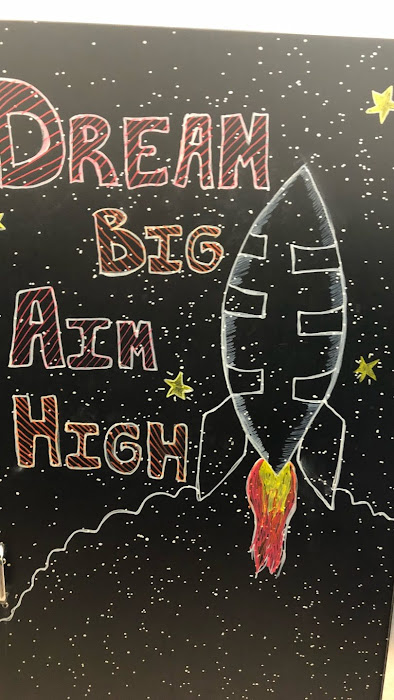 DREAM
BIG
AIM
HIGH